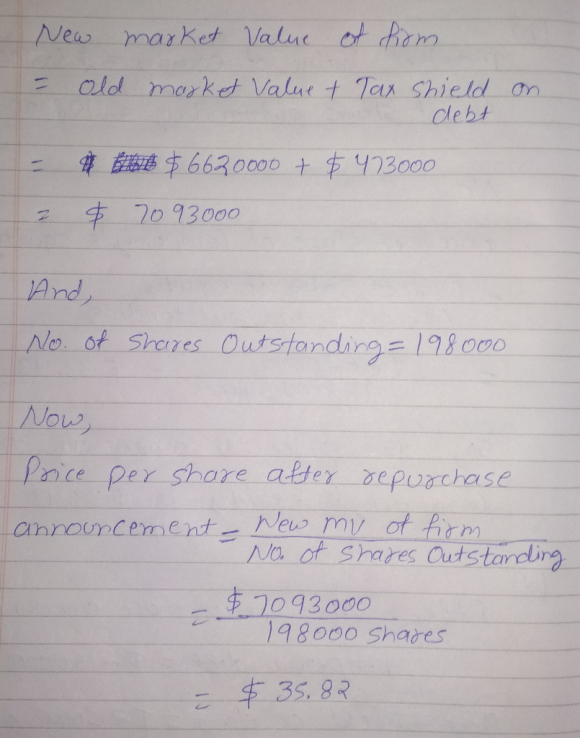 New market Value of firm
= old market Value + Tax shield on
debt
= $ $6620000 + $473000
= $ 7093000
And,
No. of Shares Outstanding = 198000
Now,
Price per share after repurchase
announcement = New mv of firm
No. of Shares Outstanding
= $ 7093000
198000 shares
= $ 35.82